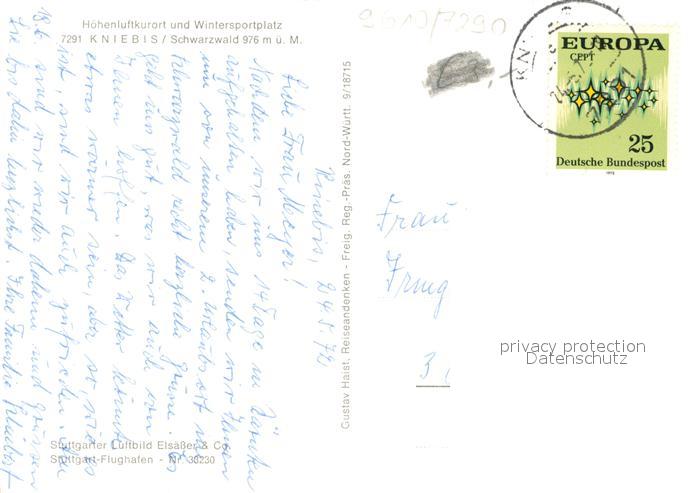 Höhenluftkurort und Wintersportplatz
7291 KNIEBIS / Schwarzwald 976 m ü. M.
Kniebis, 24.5.72
Liebe Frau Meyer!
Nachdem wir uns 14 Tage in
aufgehalten haben, senden wir Ihnen
nun von unserem 2. Urlaubsort im
Schwarzwald recht herzliche Grüße. Es
geht uns gut, was wir auch von
Ihnen hoffen. Das Wetter könnte
etwas wärmer sein, aber so wie es
ist, sind wir auch zufrieden. Am
18.6. sind wir wieder daheim und grüssen
Sie bis dahin herzlichst. Ihre Familie
Stuttgarter Luftbild Elsäßer & Co.
Stuttgart-Flughafen - Nr. 33230
Gustav Haist, Reiseandenken - Freig. Reg.-Präs. Nord-Württ. 9/18715
2610/7290
KN
EUROPA
CEPT
25
Deutsche Bundespost
1972
Frau
3
privacy protection
Datenschutz